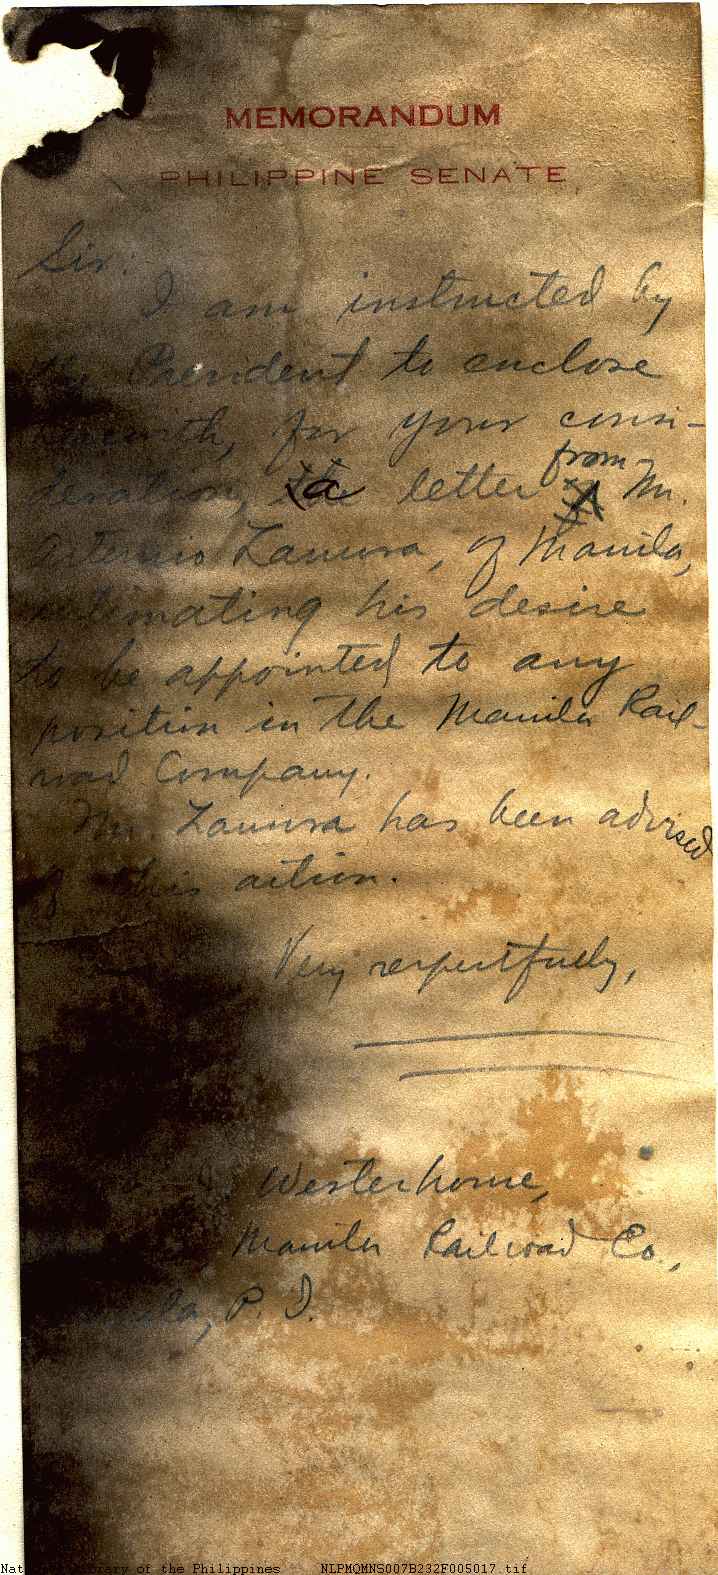 MEMORANDUM
PHILIPPINE SENATE
Sir:
I am instructed by
the President to enclose
herewith, for your consi-
deration, a letter from Mr.
Artemio Zamora, of Manila,
intimating his desire
to be appointed to any
position in the Manila Rail-
road Company.
Mr. Zamora has been advised
of this action.
Very respectfully,
Westerhouse,
Manila Railroad Co.,
Manila, P. I.
National Library of the Philippines NLPMQMNS007B232F005017.tif